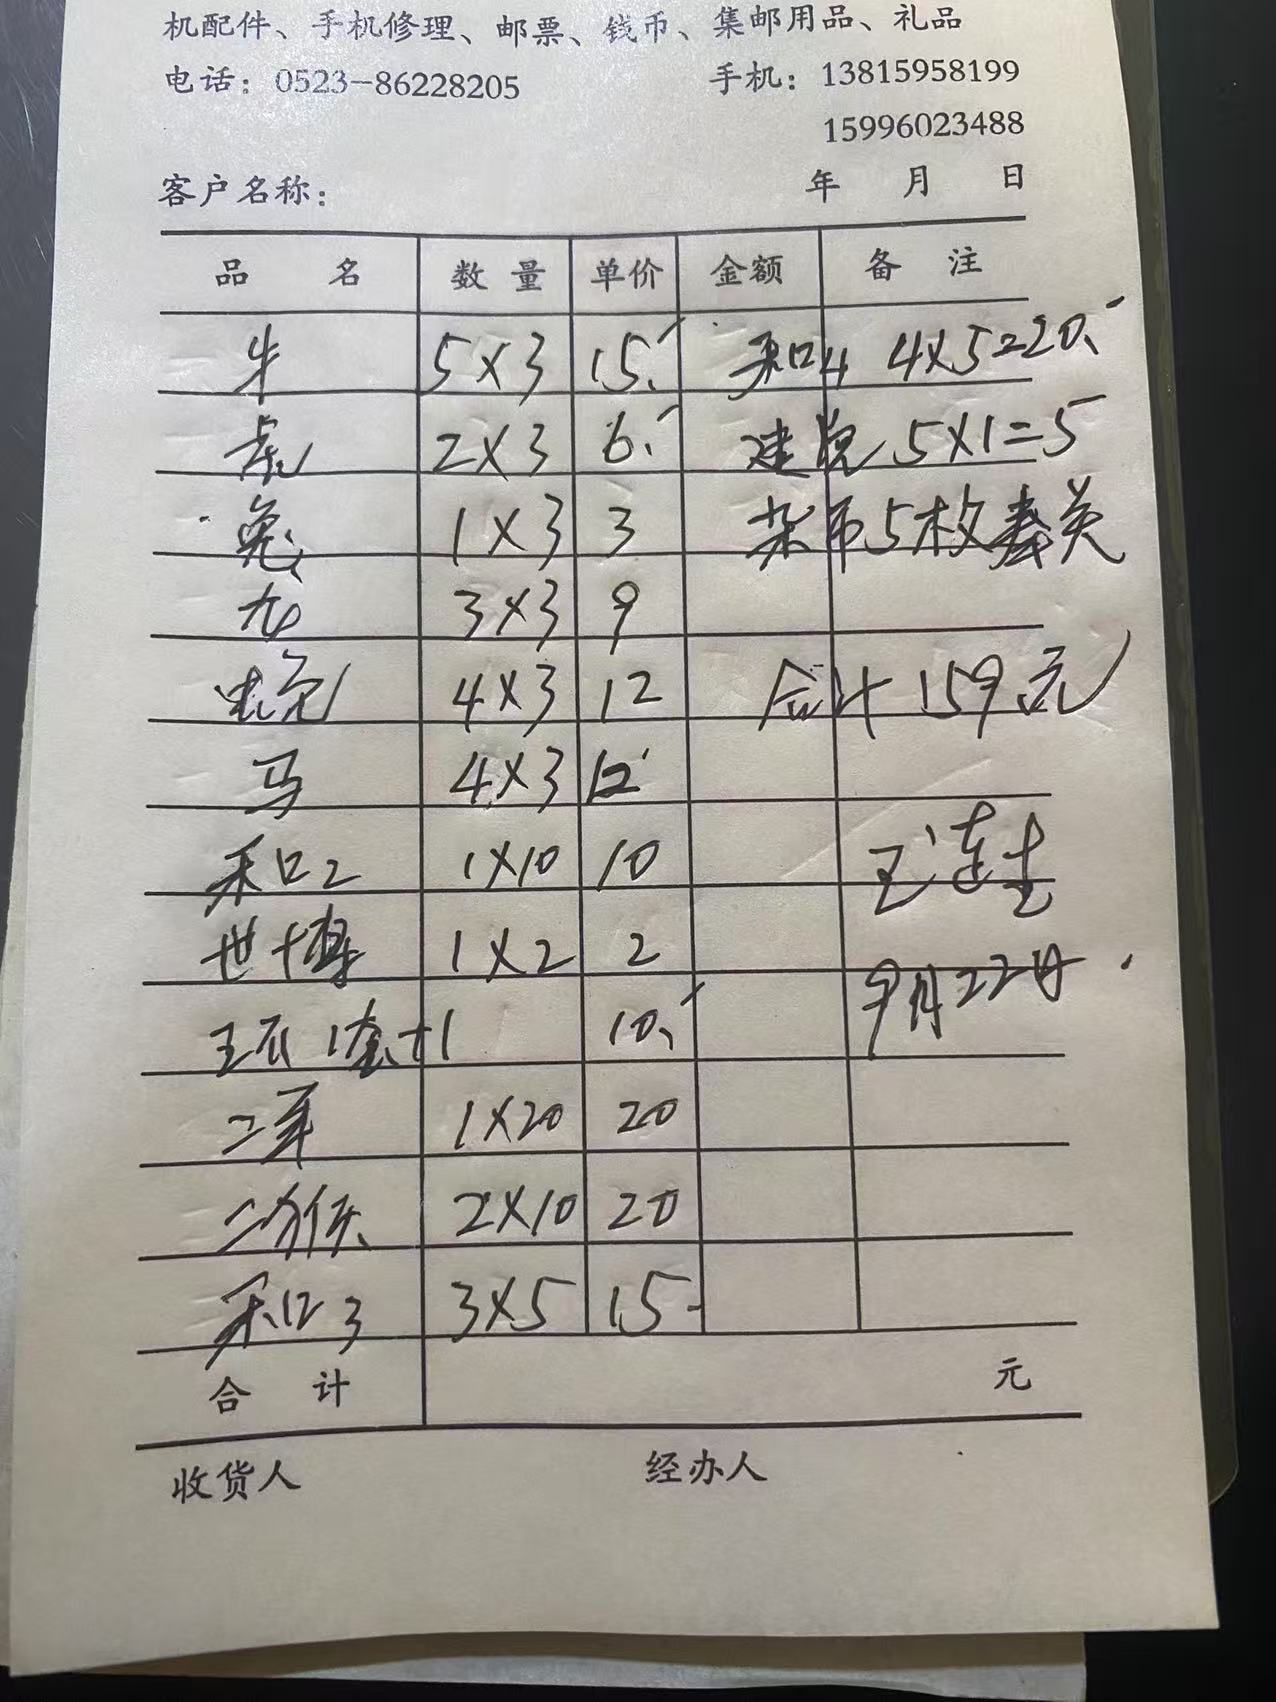 机配件、手机修理、邮票、钱币、集邮用品、礼品
电话：0523-86228205 手机：13815958199
15996023488
客户名称： 年 月 日
品 名 数 量 单价 金额 备 注
牛 5×3 15. 和4 4×5=20.
虎 2×3 6. 建党 5×1=5
兔 1×3 3 杂币5枚
龙 3×3 9
4×3 12 合计 159元
马 4×3 12
和2 1×10 10
世博 1×2 2 9月22日
1套+1 10.
二军 1×20 20
2×10 20
和3 3×5 15-
合 计 元
收货人 经办人